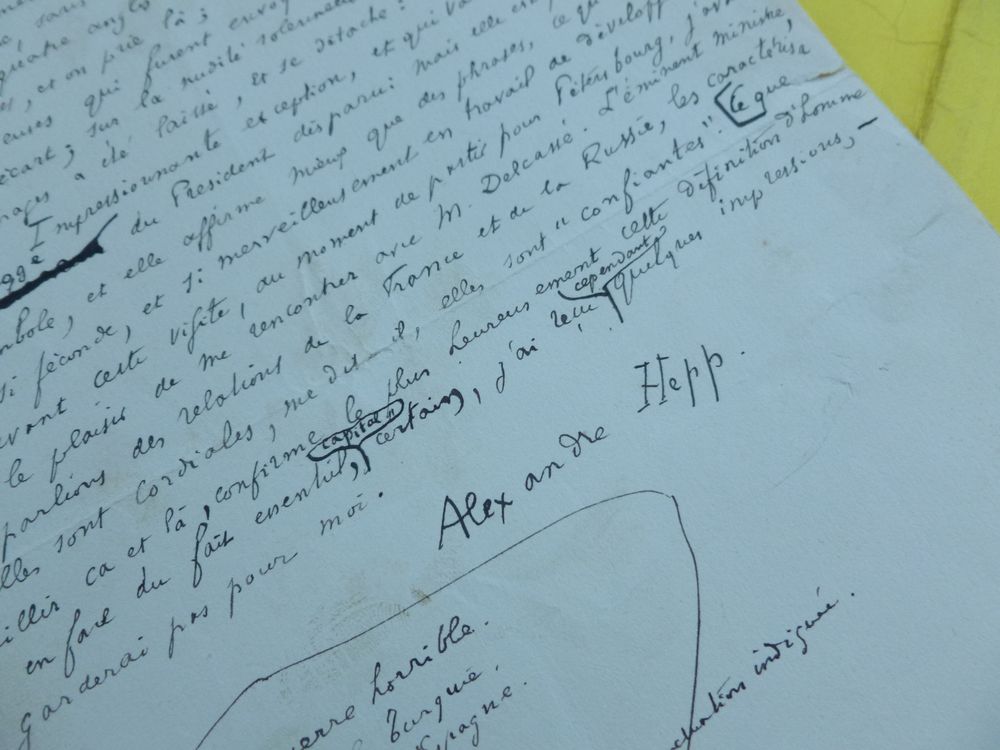 quatre angl
et on prie là ;
euses qui furent envoy
écart ; sur la nudité
a été laissé, et se détache
Impressionnante exception, et qui va
du Président disparu mais elle
mbole, et elle affirme mieux que des phrases, ce qu
si féconde, et si merveilleusement en travail de développ
avant cette visite, au moment de partir pour Pétersbourg, j'av
le plaisir de me rencontrer avec M. Delcassé. L'éminent ministre,
parlions des relations de la France et de la Russie, les caractérisa
elles sont cordiales, me dit-il, elles sont "confiantes". Ce que
illir ca et là, confirme le plus heureusement cette définition d'homme
en face du fait essentiel, capital, certain, j'ai cependant quelques impressions, —
garderai pas pour moi.
Alexandre Hepp.
erre horrible.
Turquie.
Espagne.
indignée.